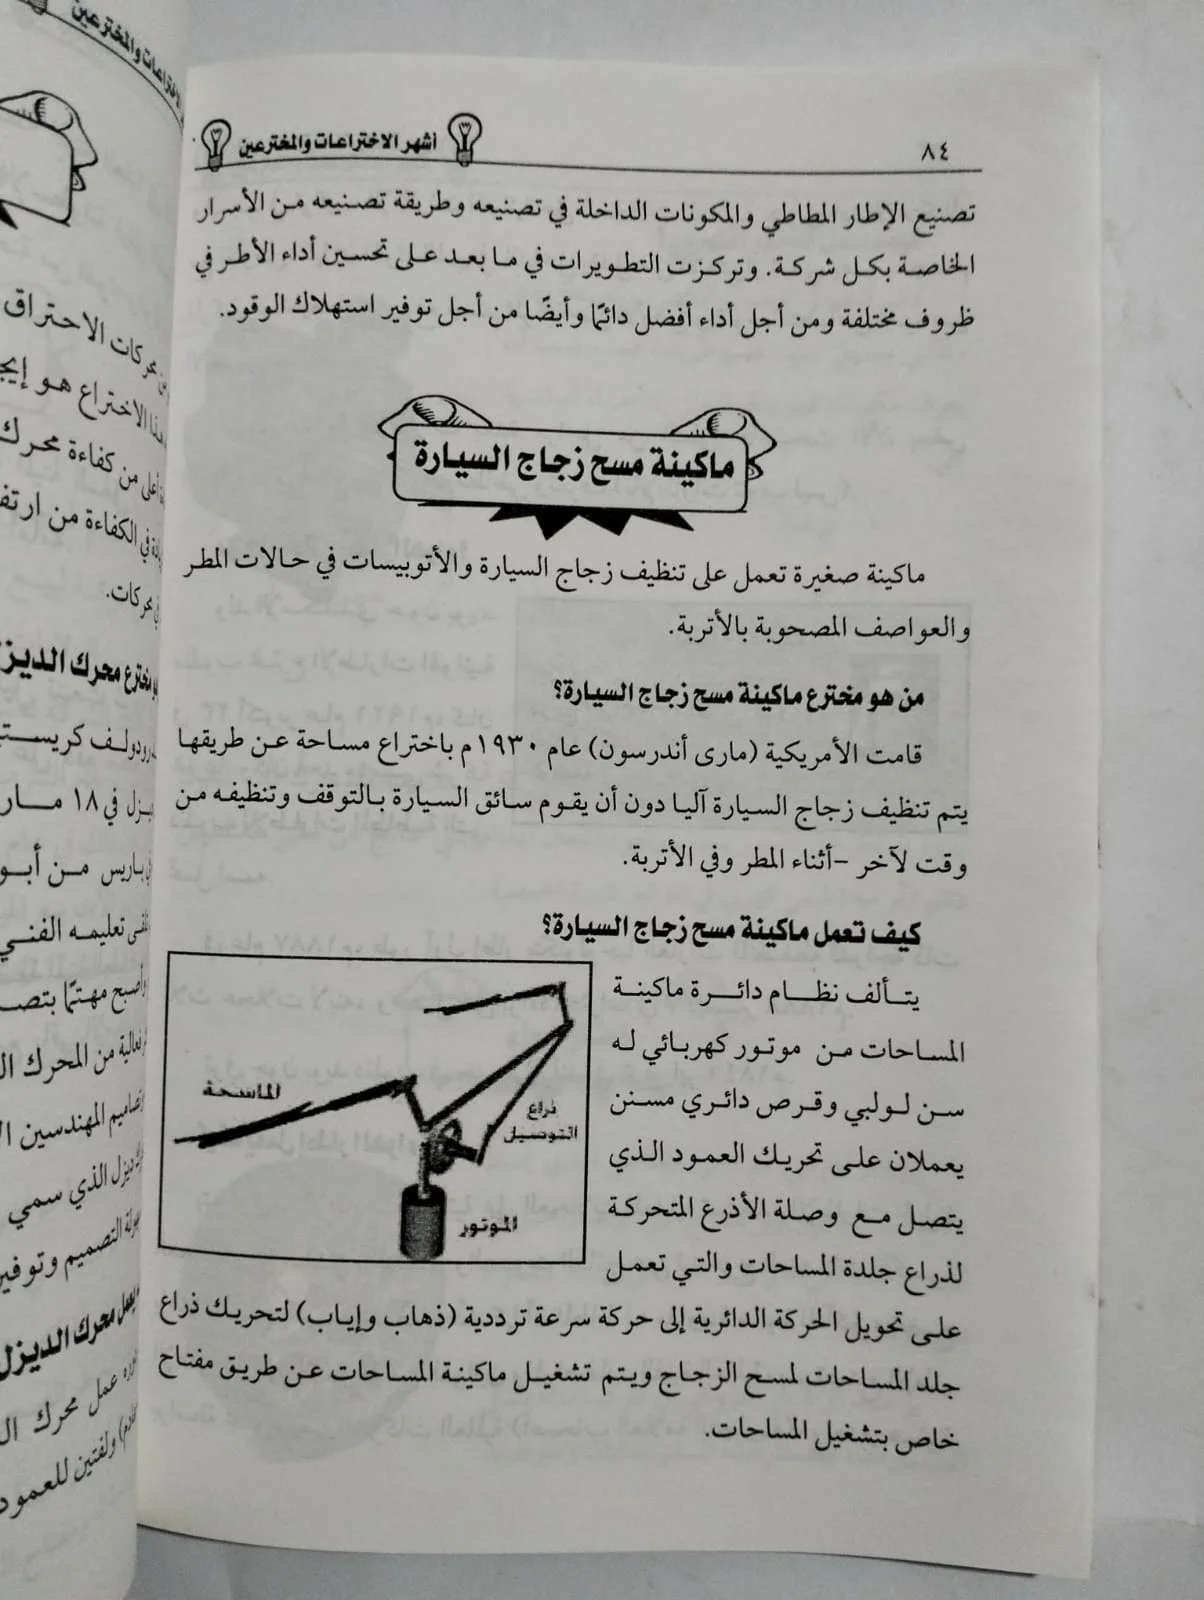 أشهر الاختراعات والمخترعين
٨٤
تصنيع الإطار المطاطي والمكونات الداخلة في تصنيعه وطريقة تصنيعه من الأسرار
الخاصة بكل شركة. وتركزت التطويرات في ما بعد على تحسين أداء الأطر في
ظروف مختلفة ومن أجل أداء أفضل دائمًا وأيضًا من أجل توفير استهلاك الوقود.
ماكينة مسح زجاج السيارة
ماكينة صغيرة تعمل على تنظيف زجاج السيارة والأتوبيسات في حالات المطر
والعواصف المصحوبة بالأتربة.
من هو مخترع ماكينة مسح زجاج السيارة؟
قامت الأمريكية (مارى أندرسون) عام ١٩٣٠م باختراع مساحة عن طريقها
يتم تنظيف زجاج السيارة آليا دون أن يقوم سائق السيارة بالتوقف وتنظيفه من
وقت لآخر -أثناء المطر وفي الأتربة.
كيف تعمل ماكينة مسح زجاج السيارة؟
يتألف نظام دائرة ماكينة
المساحات من موتور كهربائي له
سن لولبي وقرص دائري مسنن
يعملان على تحريك العمود الذي
يتصل مع وصلة الأذرع المتحركة
لذراع جلدة المساحات والتي تعمل
على تحويل الحركة الدائرية إلى حركة سرعة ترددية (ذهاب وإياب) لتحريك ذراع
جلد المساحات لمسح الزجاج ويتم تشغيل ماكينة المساحات عن طريق مفتاح
خاص بتشغيل المساحات.
الماسحة
ذراع
التوصيل
الموتور
والمخترعين
محركات الاحتراق
الاختراع هو
أعلى من كفاءة محرك
في الكفاءة من
محركات.
مخترع محرك
رودولف
في ١٨
باريس من
تعليمه الفني
وأصبح مهتمًا
من المحرك
المهندسين
ديزل الذي سمي
التصميم
محرك الديزل
عمل محرك
ولفتين للعمود